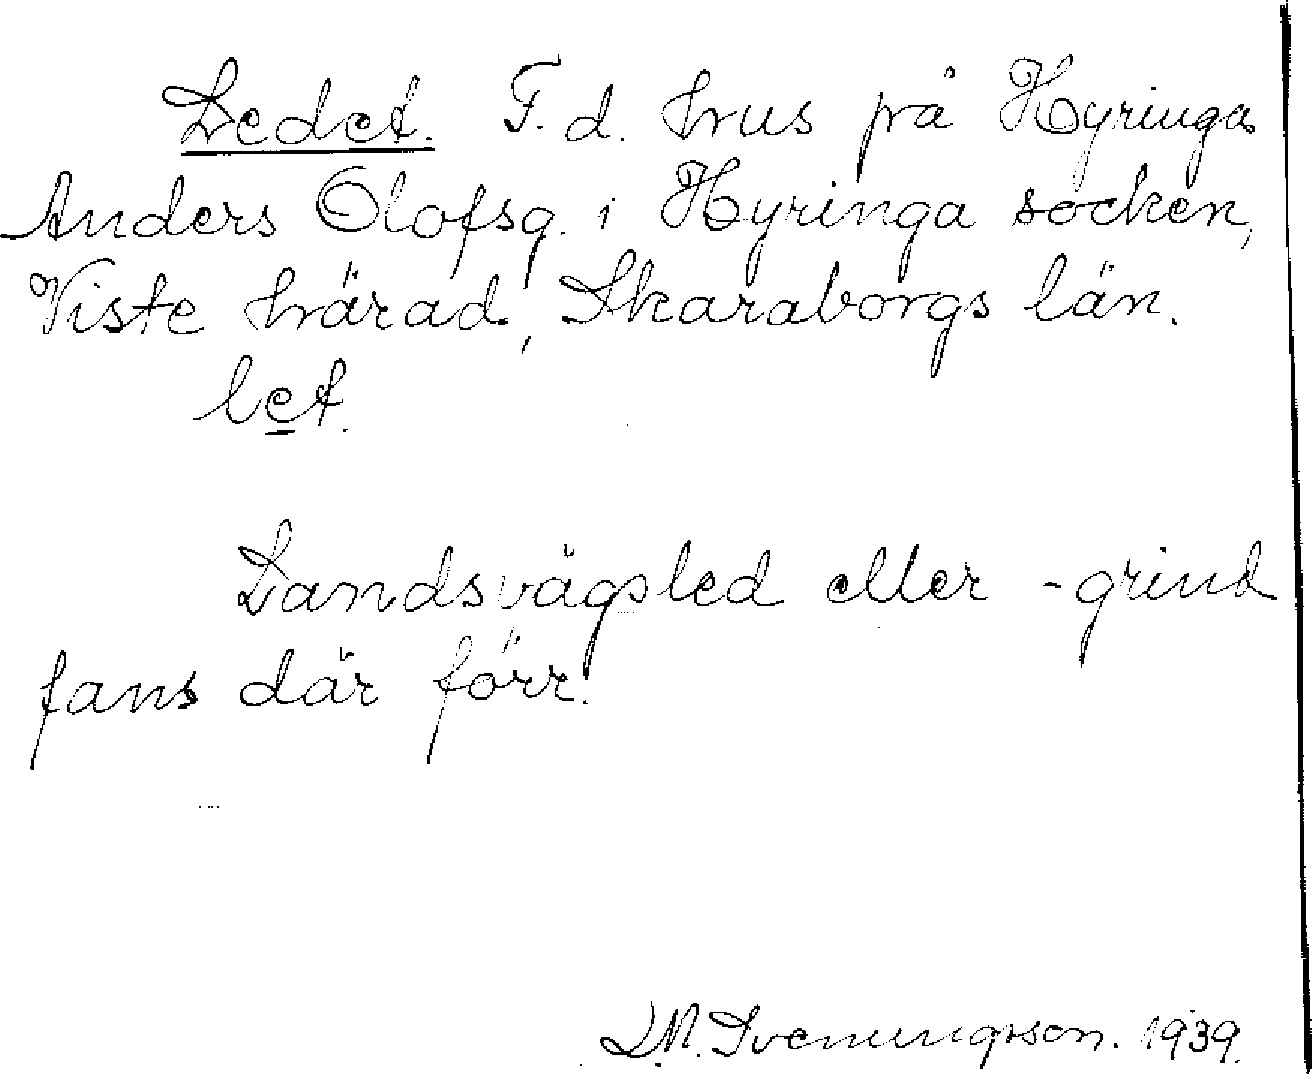 Ledet. F.d. hus på Hyringa
Anders Olofsg. i Hyringa socken,
Viste härad, Skaraborgs län.
let.
Landsvägsled eller -grind
fans där förr.
D.N. Svenungsson. 1939.